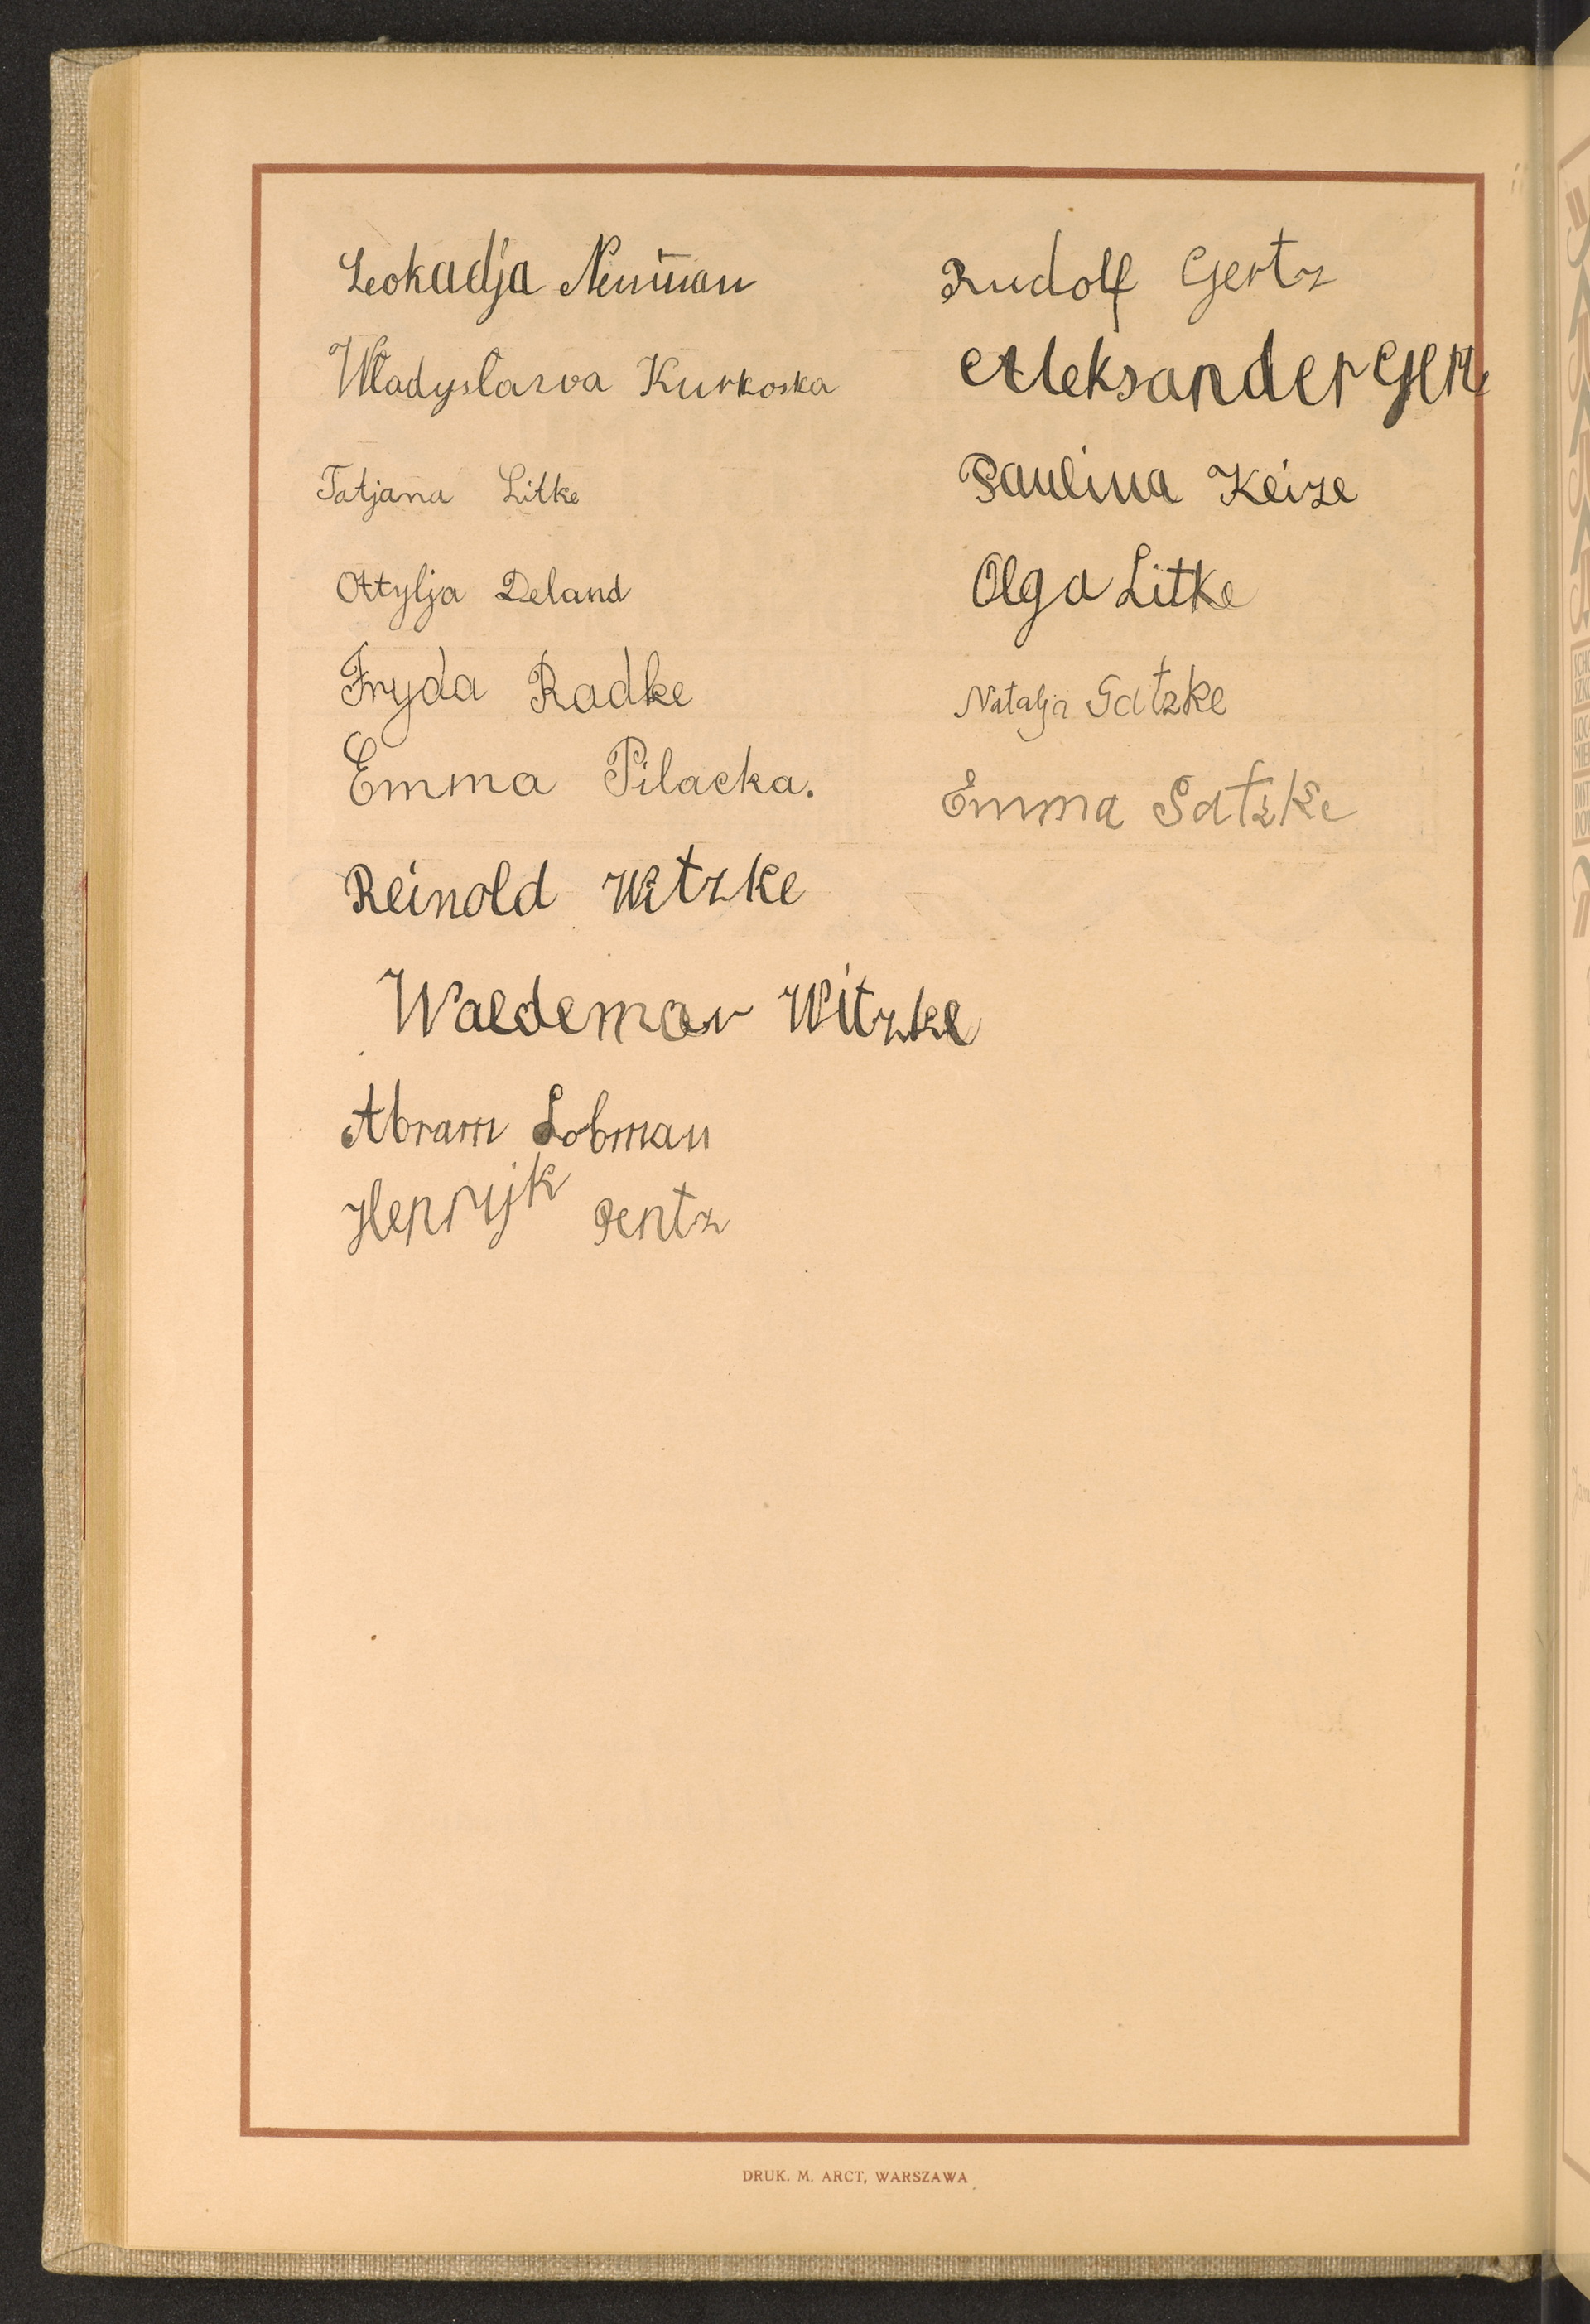 Leokadja Neuman
Władysława Kurkoska
Tatjana Litke
Ottylja Deland
Fryda Radke
Emma Pilacka.
Reinold Witzke
Waldemar Witzke
Abram Lobman
Henryjk Pentz
Rudolf Gertz
Aleksander
Paulina Keize
Olga Litke
Natalja Gatzke
Emma Gatzke
DRUK. M. ARCT, WARSZAWA